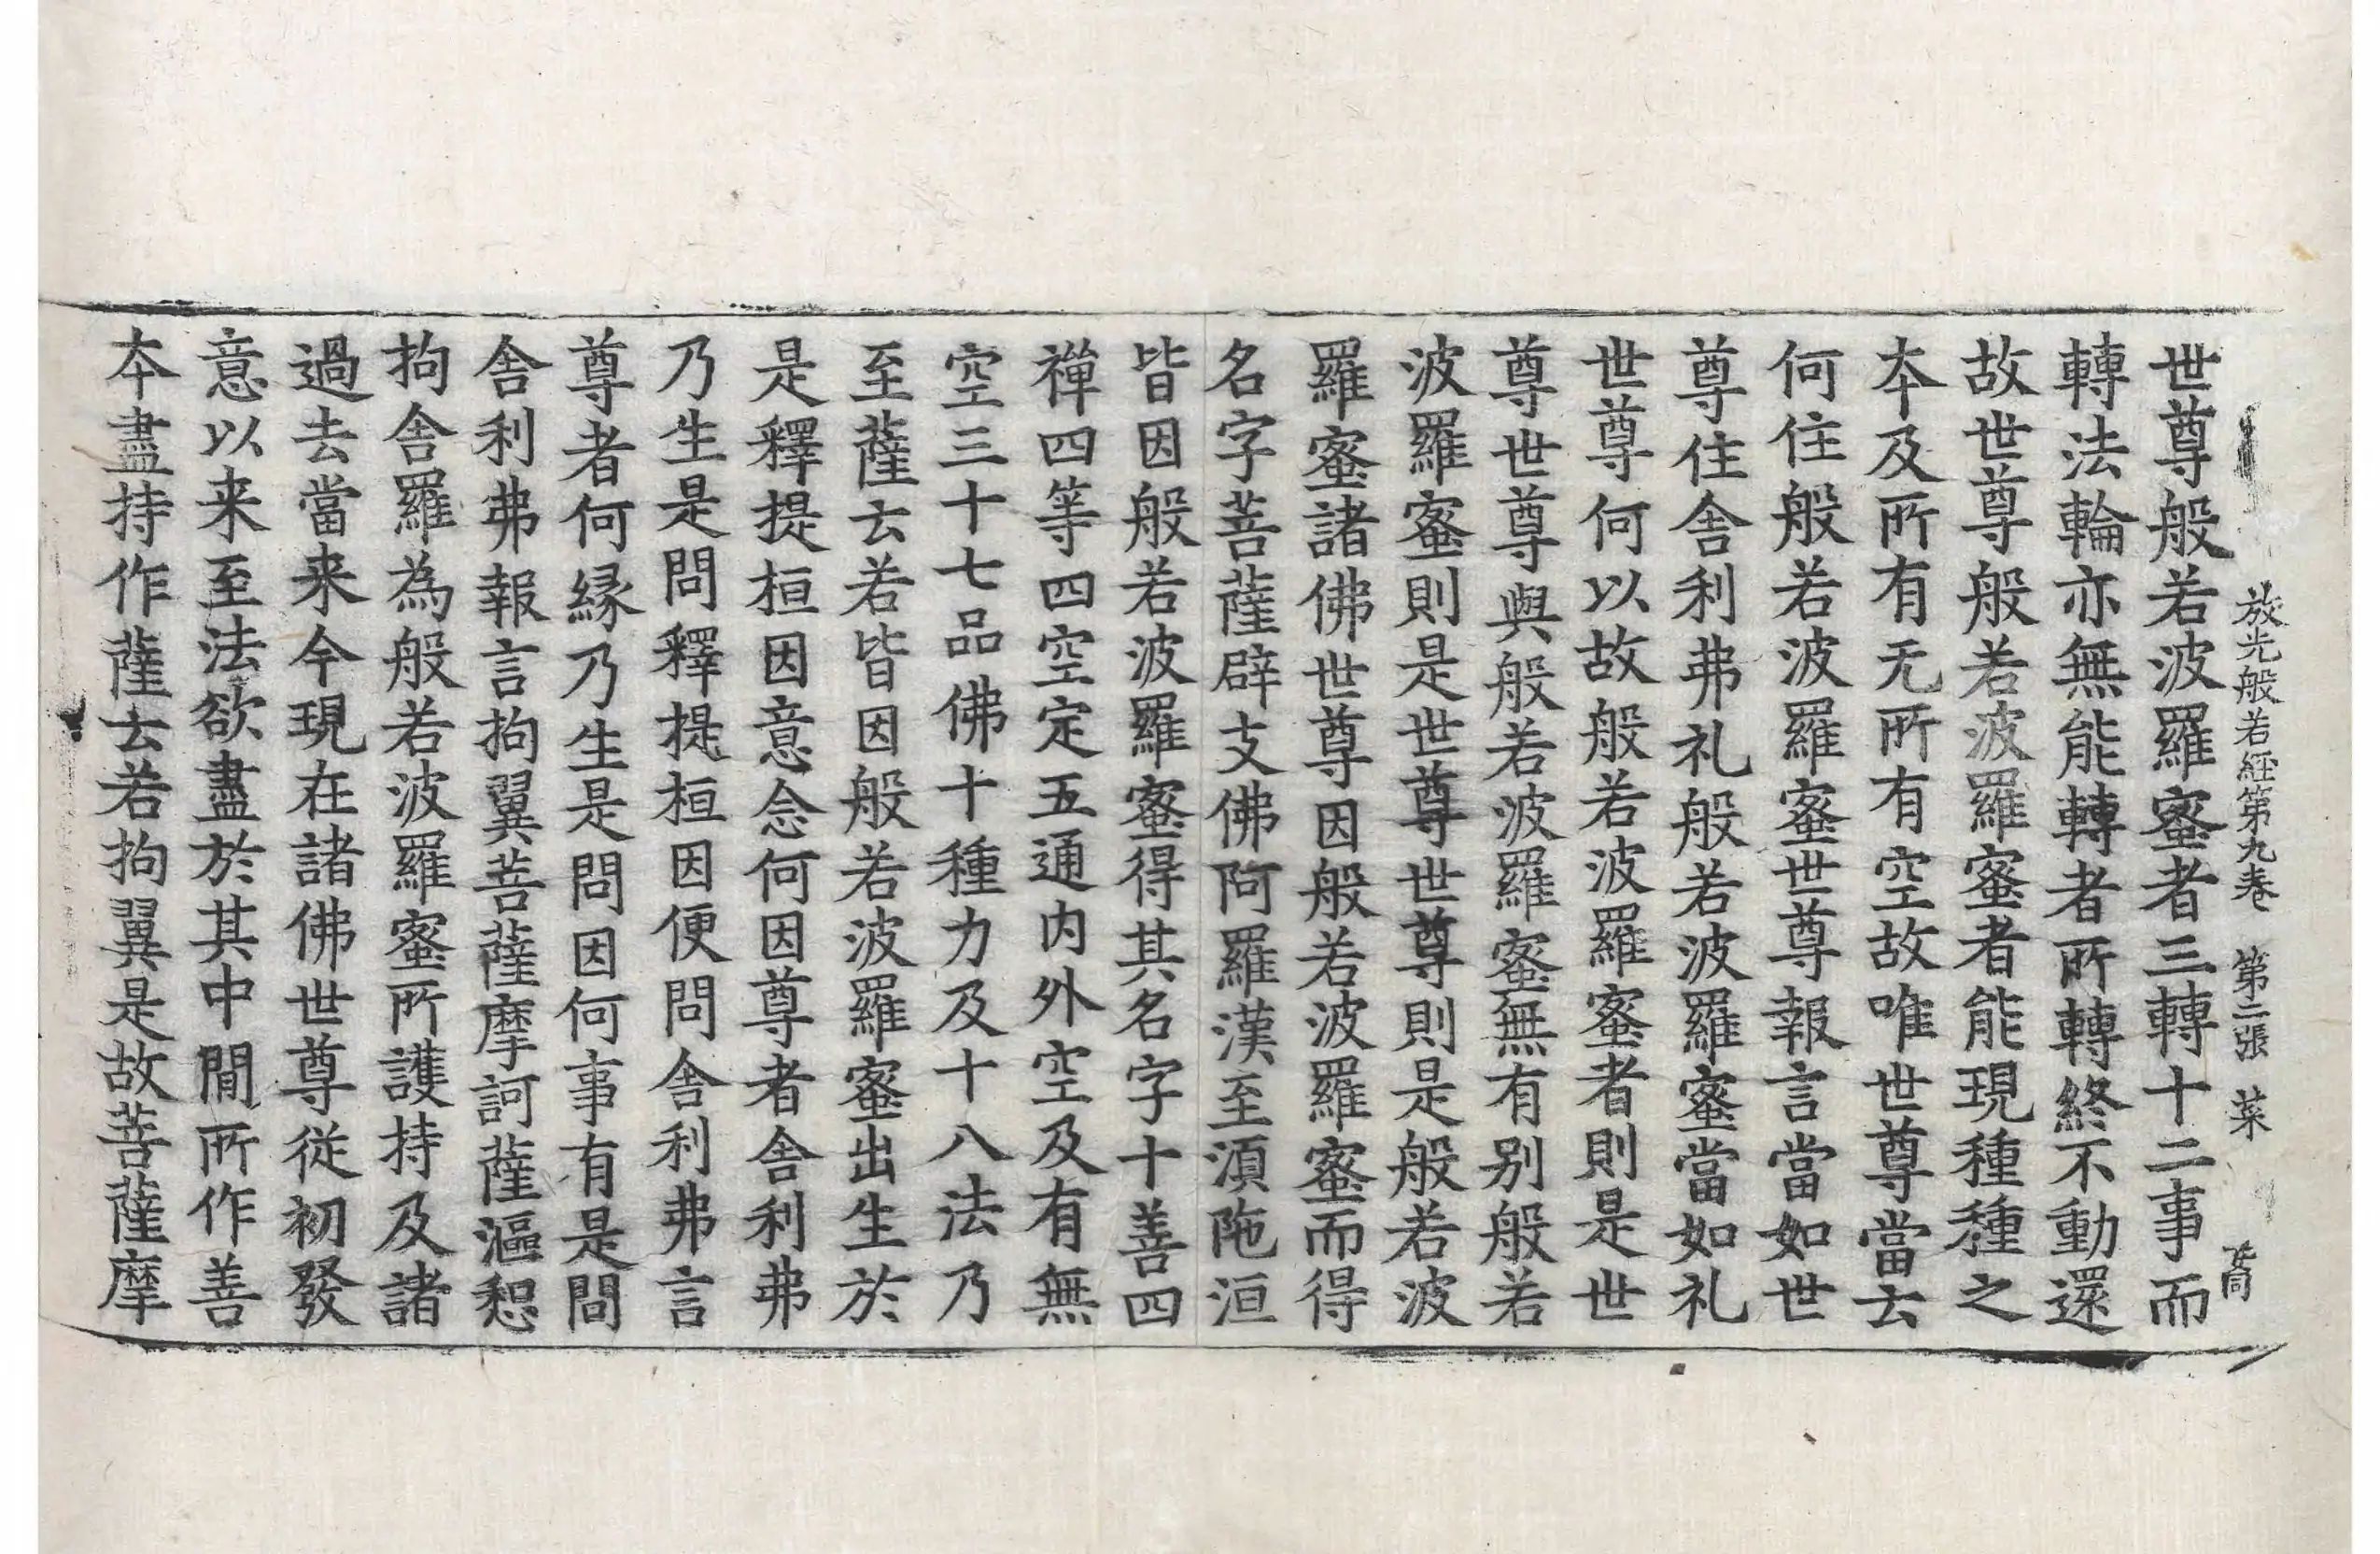 放光般若經第九卷　第三張　菜
世尊般若波羅蜜者三轉十二事而
轉法輪亦無能轉者所轉終不動還
故世尊般若波羅蜜者能現種種之
本及所有无所有空故唯世尊當去
何住般若波羅蜜世尊報言當如世
尊住舍利弗礼般若波羅蜜當如礼
世尊何以故般若波羅蜜者則是世
尊世尊與般若波羅蜜無有别般若
波羅蜜則是世尊世尊則是般若波
羅蜜諸佛世尊因般若波羅蜜而得
名字菩薩辟支佛阿羅漢至湏陁洹
皆因般若波羅蜜得其名字十善四
禪四等四空定五通内外空及有無
空三十七品佛十種力及十八法乃
至薩云若皆因般若波羅蜜出生於
是釋提桓因意念何因尊者舍利弗
乃生是問釋提桓因便問舍利弗言
尊者何縁乃生是問因何事有是問
舍利弗報言拘翼菩薩摩訶薩漚惒
拘舍羅為般若波羅蜜所護持及諸
過去當来今現在諸佛世尊從初發
意以来至法欲盡於其中閒所作善
本盡持作薩云若拘翼是故菩薩摩